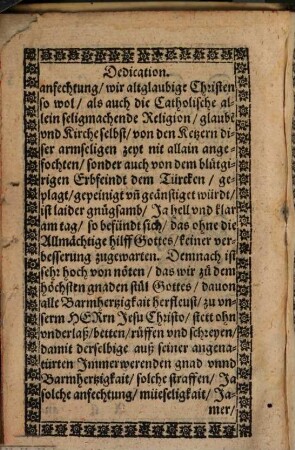 Dedication.
anfechtung/ wir altglaubige Christen
so wol/ als auch die Catholische al-
lein seligmachende Religion/ glaubē
vnd Kirche selbst/ von den Ketzern di-
ser armseligen zeyt nit allain ange-
fochten/ sonder auch von dem blůtgi-
rigen Erbfeindt dem Türcken/ ge-
plagt/ gepeinigt vň geänstiget würdt/
ist laider gnůgsamb/ Ja hell vnd klar
am tag/ so befündt sich/ das ohne die
Allmächtige hilff Gottes/ keiner ver-
besserung zugewarten. Demnach ist
sehr hoch von nöten/ das wir zů dem
höchsten gnaden stůl Gottes/ dauon
alle Barmhertzigkait herfleust/ zu vn-
serm HERrn Jesu Christo/ stett ohn
vnderlaß/ betten/ rüffen vnd schreyen/
damit derselbige auß seiner angena-
türten Immerwerenden gnad vnnd
Barmhertzigkait/ solche straffen/ Ja
solche anfechtung/ müeseligkait/ Ja-
mer/